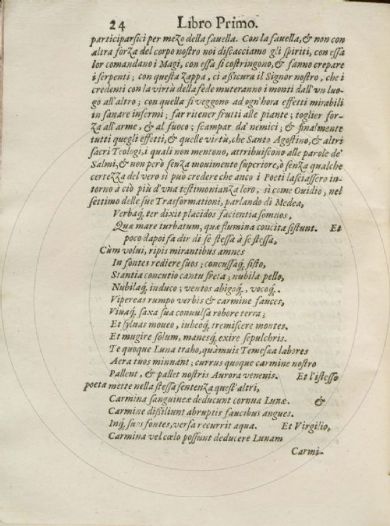 24 Libro Primo.
participarsici per mezo della fauella. Con la fauella, & non con
altra forza del corpo nostro noi discacciamo gli spiriti, con essa
lor comandano i Magi, con essa si costringono, & fanno crepare
i serpenti; con questa zappa, ci assicura il Signor nostro, che i
credenti con la virtù della fede muteranno i monti dall'vn luo-
go all'altro; con quella si veggono ad ogn'hora effetti mirabili
in sanare infermi; far ritener frutti alle piante; toglier for-
za all'arme, & al fuoco; scampar da' nemici; & finalmente
tutti quegli effetti, & quelle virtù, che Santo Agostino, & altri
sacri Teologi, i quali non mentono, attribuiscono alle parole de'
Salmi, & non però senza mouimento superiore, ò senza qualche
certezza del vero si può credere che anco i Poeti lasciassero in-
torno à ciò più d'vna testimonianza loro, sì come Ouidio, nel
settimo delle sue Trasformationi, parlando di Medea,
Verbaq́; ter dixit placidos facientia somnos,
Quæ mare turbatum, quæ flumina concita sistunt. Et
poco dapoi fa dir di se stessa à se stessa,
Cùm volui, ripis mirantibus amnes
In fontes rediere suos; concussaq́; sisto,
Stantia concutio cantu freta; nubila pello,
Nubilaq́; induco; ventos abigoq́;, vocoq́;.
Vipereas rumpo verbis & carmine fauces,
Viuaq́; saxa sua conuulsa robore terra;
Et syluas moueo, iubeoq́; tremiscere montes,
Et mugire solum, manesq́; exire sepulchris.
Te quoque Luna traho, quamuis Temesæa labores
Aera tuos minuant; currus quoque carmine nostro
Pallent, & pallet nostris Aurora venenis. Et l'istesso
poeta mette nella stessa sentenza quest'altri,
Carmina sanguineæ deducunt cornua Lunæ. &
Carmine dissiliunt abruptis faucibus angues.
Inq́; suos fontes, versa recurrit aqua. Et Virgilio,
Carmina vel cœlo possunt deducere Lunam
Carmi-